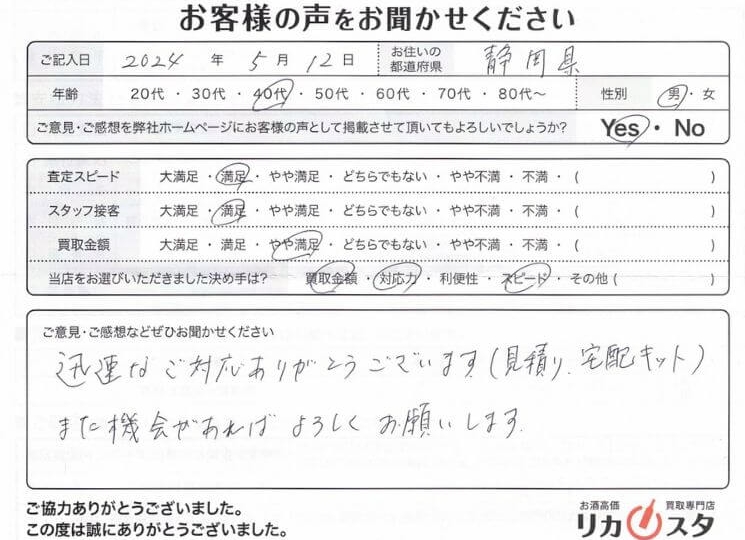 お客様の声をお聞かせください
ご記入日 2024 年 5 月 12 日 お住いの都道府県 静岡県
年齢 20代 ・ 30代 ・ 40代 ・ 50代 ・ 60代 ・ 70代 ・ 80代〜 性別 男 ・ 女
ご意見・ご感想を弊社ホームページにお客様の声として掲載させて頂いてもよろしいでしょうか? Yes ・ No
査定スピード 大満足 ・ 満足 ・ やや満足 ・ どちらでもない ・ やや不満 ・ 不満 ・ ( )
スタッフ接客 大満足 ・ 満足 ・ やや満足 ・ どちらでもない ・ やや不満 ・ 不満 ・ ( )
買取金額 大満足 ・ 満足 ・ やや満足 ・ どちらでもない ・ やや不満 ・ 不満 ・ ( )
当店をお選びいただきました決め手は? 買取金額 ・ 対応力 ・ 利便性 ・ スピード ・ その他 ( )
ご意見・ご感想などぜひお聞かせください
迅速なご対応ありがとうございます(見積り、宅配キット)
また機会があればよろしくお願いします.
ご協力ありがとうございました。
この度は誠にありがとうございました。
お酒高価 買取専門店
リカスタ